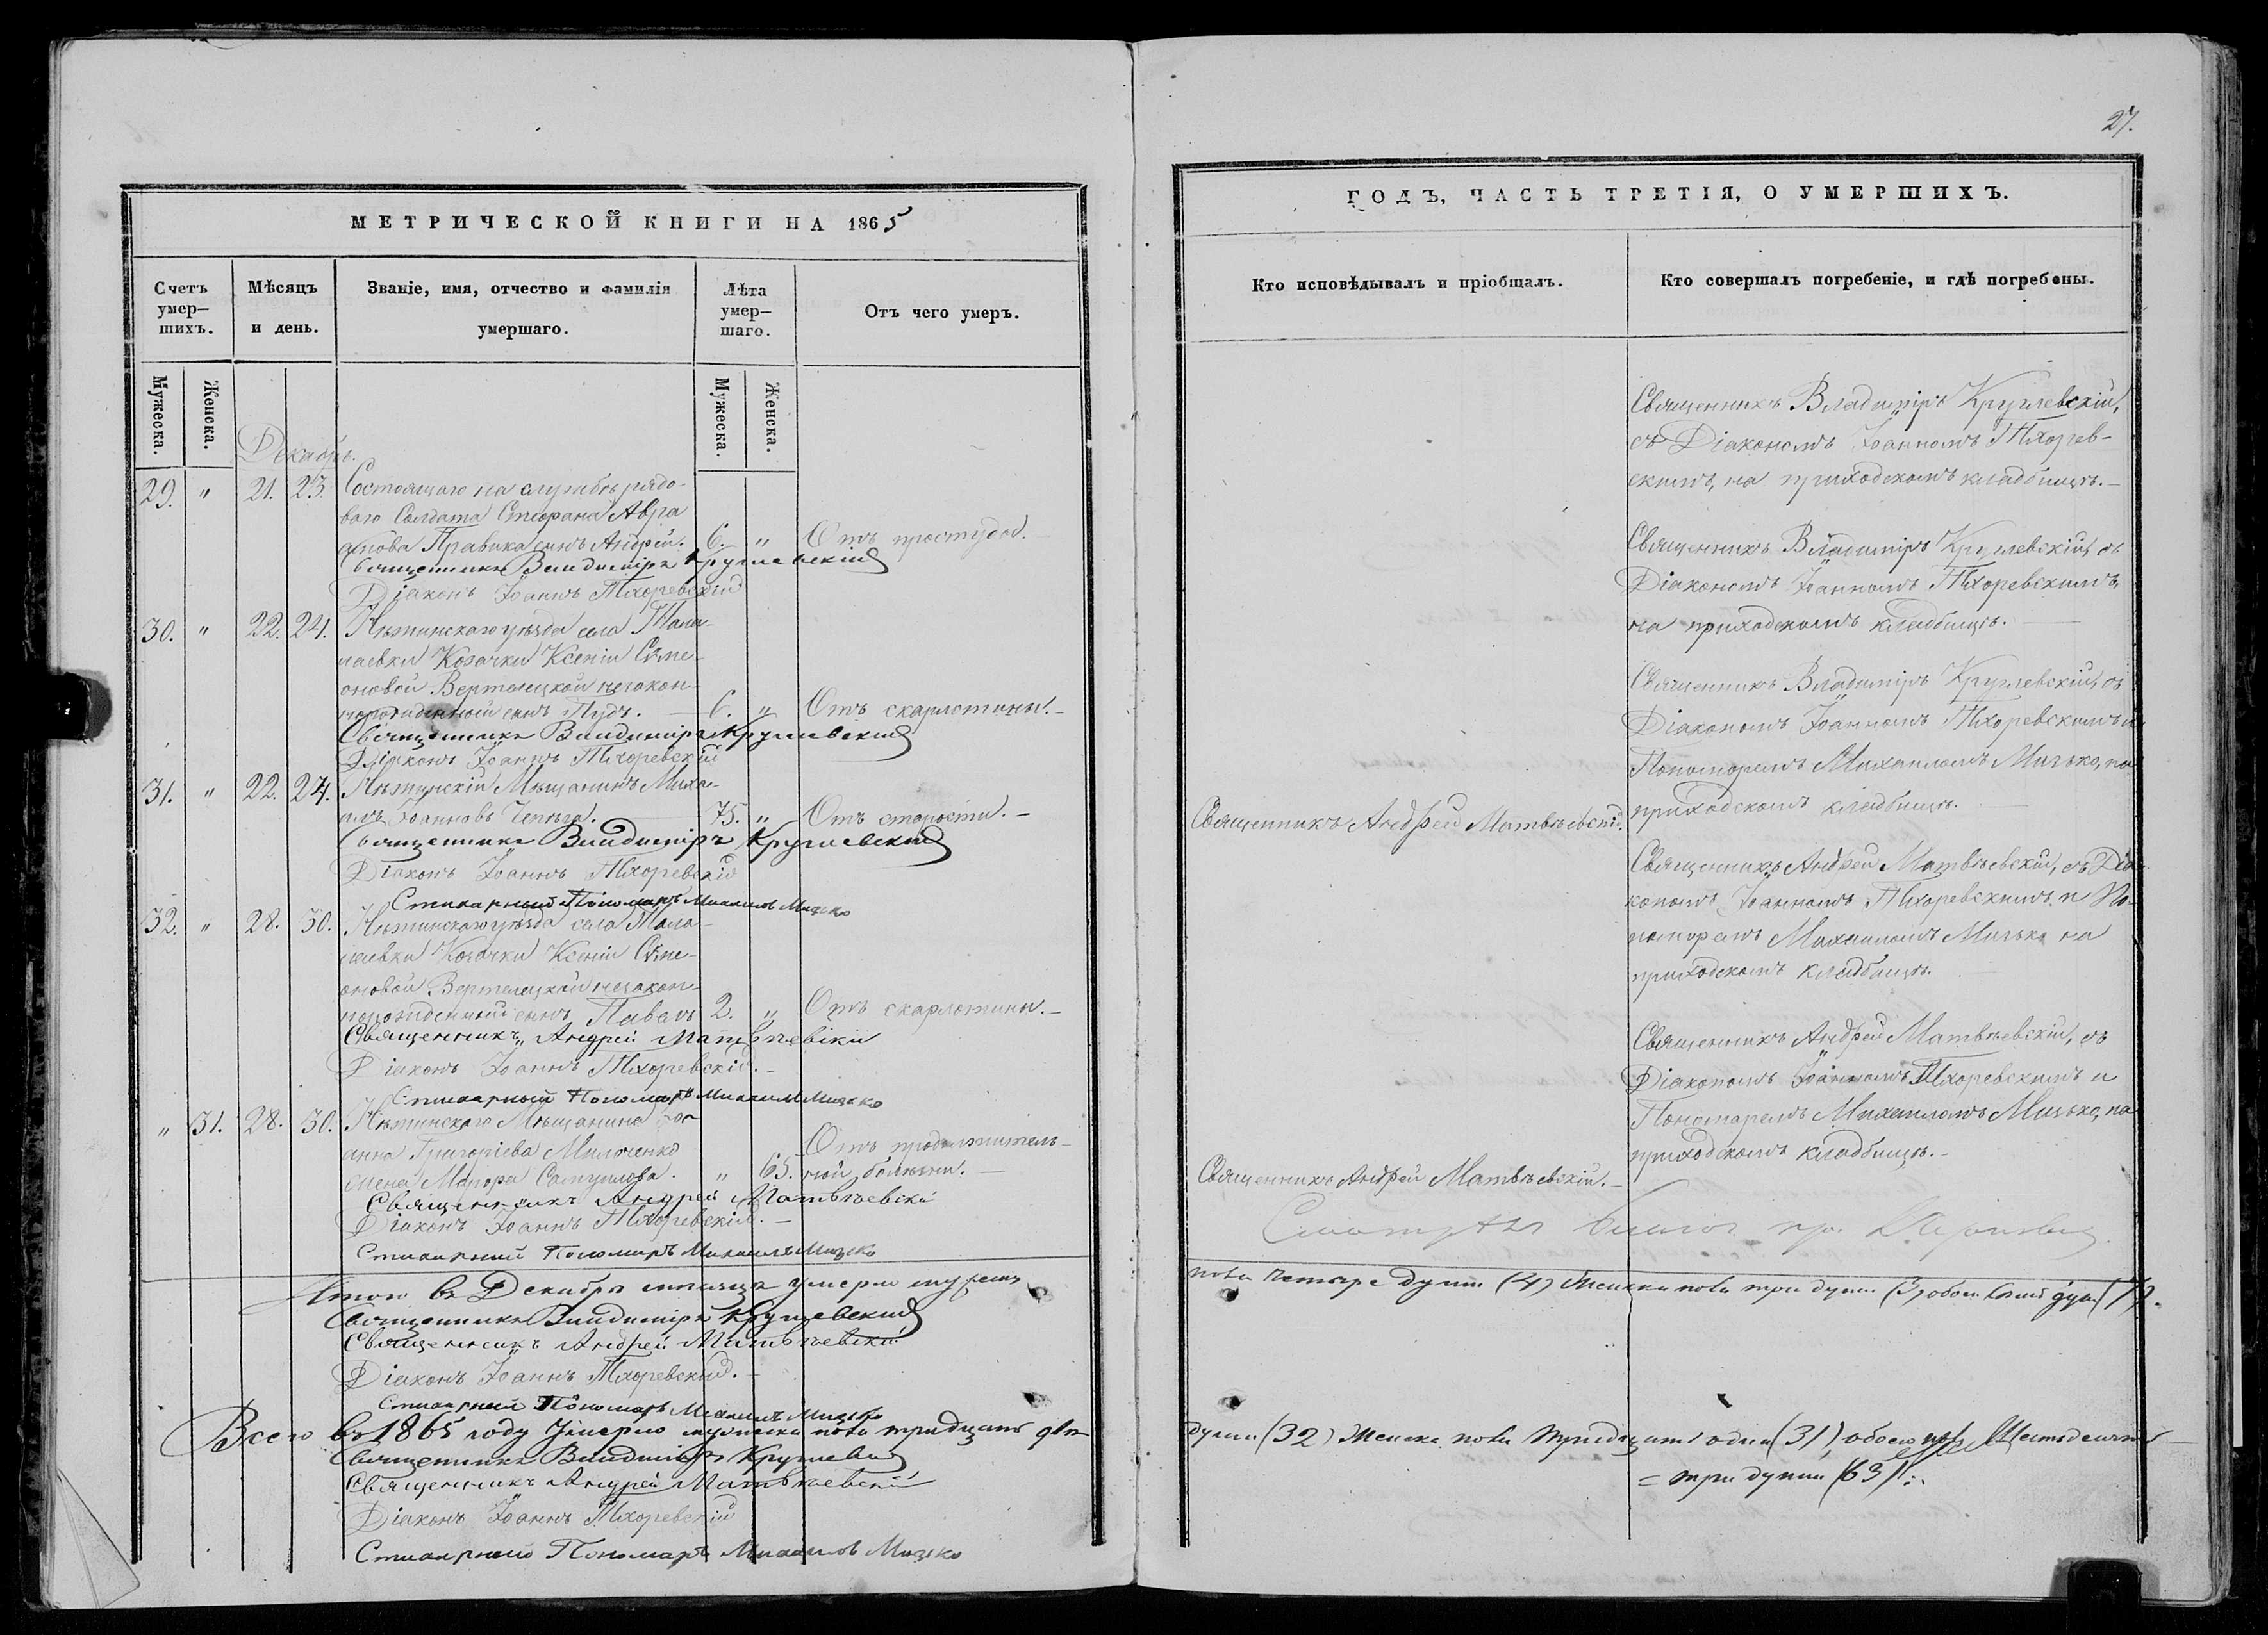 МЕТРИЧЕСКОЙ КНИГИ НА 1865
Счетъ умер-шихъ.
Мѣсяцъ и день.
Званіе, имя, отчество и фамилія умершаго.
Лѣта умер-шаго.
Отъ чего умеръ.
Мужеска.
Женска.
Мужеска.
Женска.
Декабрь.
29. " 21. 23. Состоящаго на службѣ рядо-
ваго Солдата Стефана Авра
амова Правика сынъ Андрей. 6. " Отъ простуды.
Священникъ Владиміръ Круглевскій
Діаконъ Іоаннъ Тхоревскій
30. " 22. 24. Нѣжинскаго уѣзда села Тала-
лаевки Козачки Ксеніи Сѵме-
оновой Вертелецкой незакон-
норожденный сынъ Пудъ. 6. " Отъ скарлотины.
Священникъ Владиміръ Круглевскій
Діаконъ Іоаннъ Тхоревскій
31. " 22. 24. Нѣжинскій Мѣщанинъ Миха-
илъ Іоанновъ Чепѣга. 75. " Отъ старости.
Священникъ Владиміръ Круглевскій
Діаконъ Іоаннъ Тхоревскій
Стихарный Пономарь Михаилъ Мизько
32. " 28. 30. Нѣжинскаго уѣзда села Тала-
лаевки Козачки Ксеніи Сѵме-
оновой Вертелецкой незакон-
норожденный сынъ Павелъ 2. " Отъ скарлотины.
Священникъ Андрей Матвѣевскій
Діаконъ Іоаннъ Тхоревскій.
Стихарный Пономарь Михаилъ Мизько
" 31. 28. 30. Нѣжинскаго Мѣщанина Іо-
анна Григоріева Милоченко
жена Мавра Самуилова. " 65. Отъ продолжитель-
ной болѣзни.
Священникъ Андрей Матвѣевскій
Діаконъ Іоаннъ Тхоревскій.
Стихарный Пономарь Михаилъ Мизько
Итого въ Декабрѣ мѣсяцѣ умерло мужеск
Священникъ Владиміръ Круглевскій
Священникъ Андрей Матвѣевскій
Діаконъ Іоаннъ Тхоревскій.
Стихарный Пономарь Михаилъ Мизько
Всего въ 1865 году умерло мужеска пола тридцать двѣ
Священникъ Владиміръ Круглевскій
Священникъ Андрей Матвѣевскій
Діаконъ Іоаннъ Тхоревскій
Стихарный Пономарь Михаилъ Мизько
27.
ГОДЪ, ЧАСТЬ ТРЕТІЯ, О УМЕРШИХЪ.
Кто исповѣдывалъ и пріобщалъ.
Кто совершалъ погребеніе, и гдѣ погребены.
Священникъ Владиміръ Круглевскій,
съ Діакономъ Іоанномъ Тхорев-
скимъ, на приходскомъ кладбищѣ.
Священникъ Владиміръ Круглевскій, съ
Діакономъ Іоанномъ Тхоревскимъ,
на приходскомъ кладбищѣ.
Священникъ Владиміръ Круглевскій, съ
Діакономъ Іоанномъ Тхоревскимъ и
Пономаремъ Михаиломъ Мизько, на
приходскомъ кладбищѣ.
Священникъ Андрей Матвѣевскій.
Священникъ Андрей Матвѣевскій, съ Діа-
кономъ Іоанномъ Тхоревскимъ и По-
номаремъ Михаиломъ Мизько на
приходскомъ кладбищѣ.
Священникъ Андрей Матвѣевскій, съ
Діакономъ Іоанномъ Тхоревскимъ и
Пономаремъ Михаиломъ Мизько, на
приходскомъ кладбищѣ.
Священникъ Андрей Матвѣевскій.
пола четыре души (4) Женска пола три души (3) обоего семь душ (7).
души (32) Женска пола тридцать одна (31), обоего пола Шестьдесятъ
= три души (63)